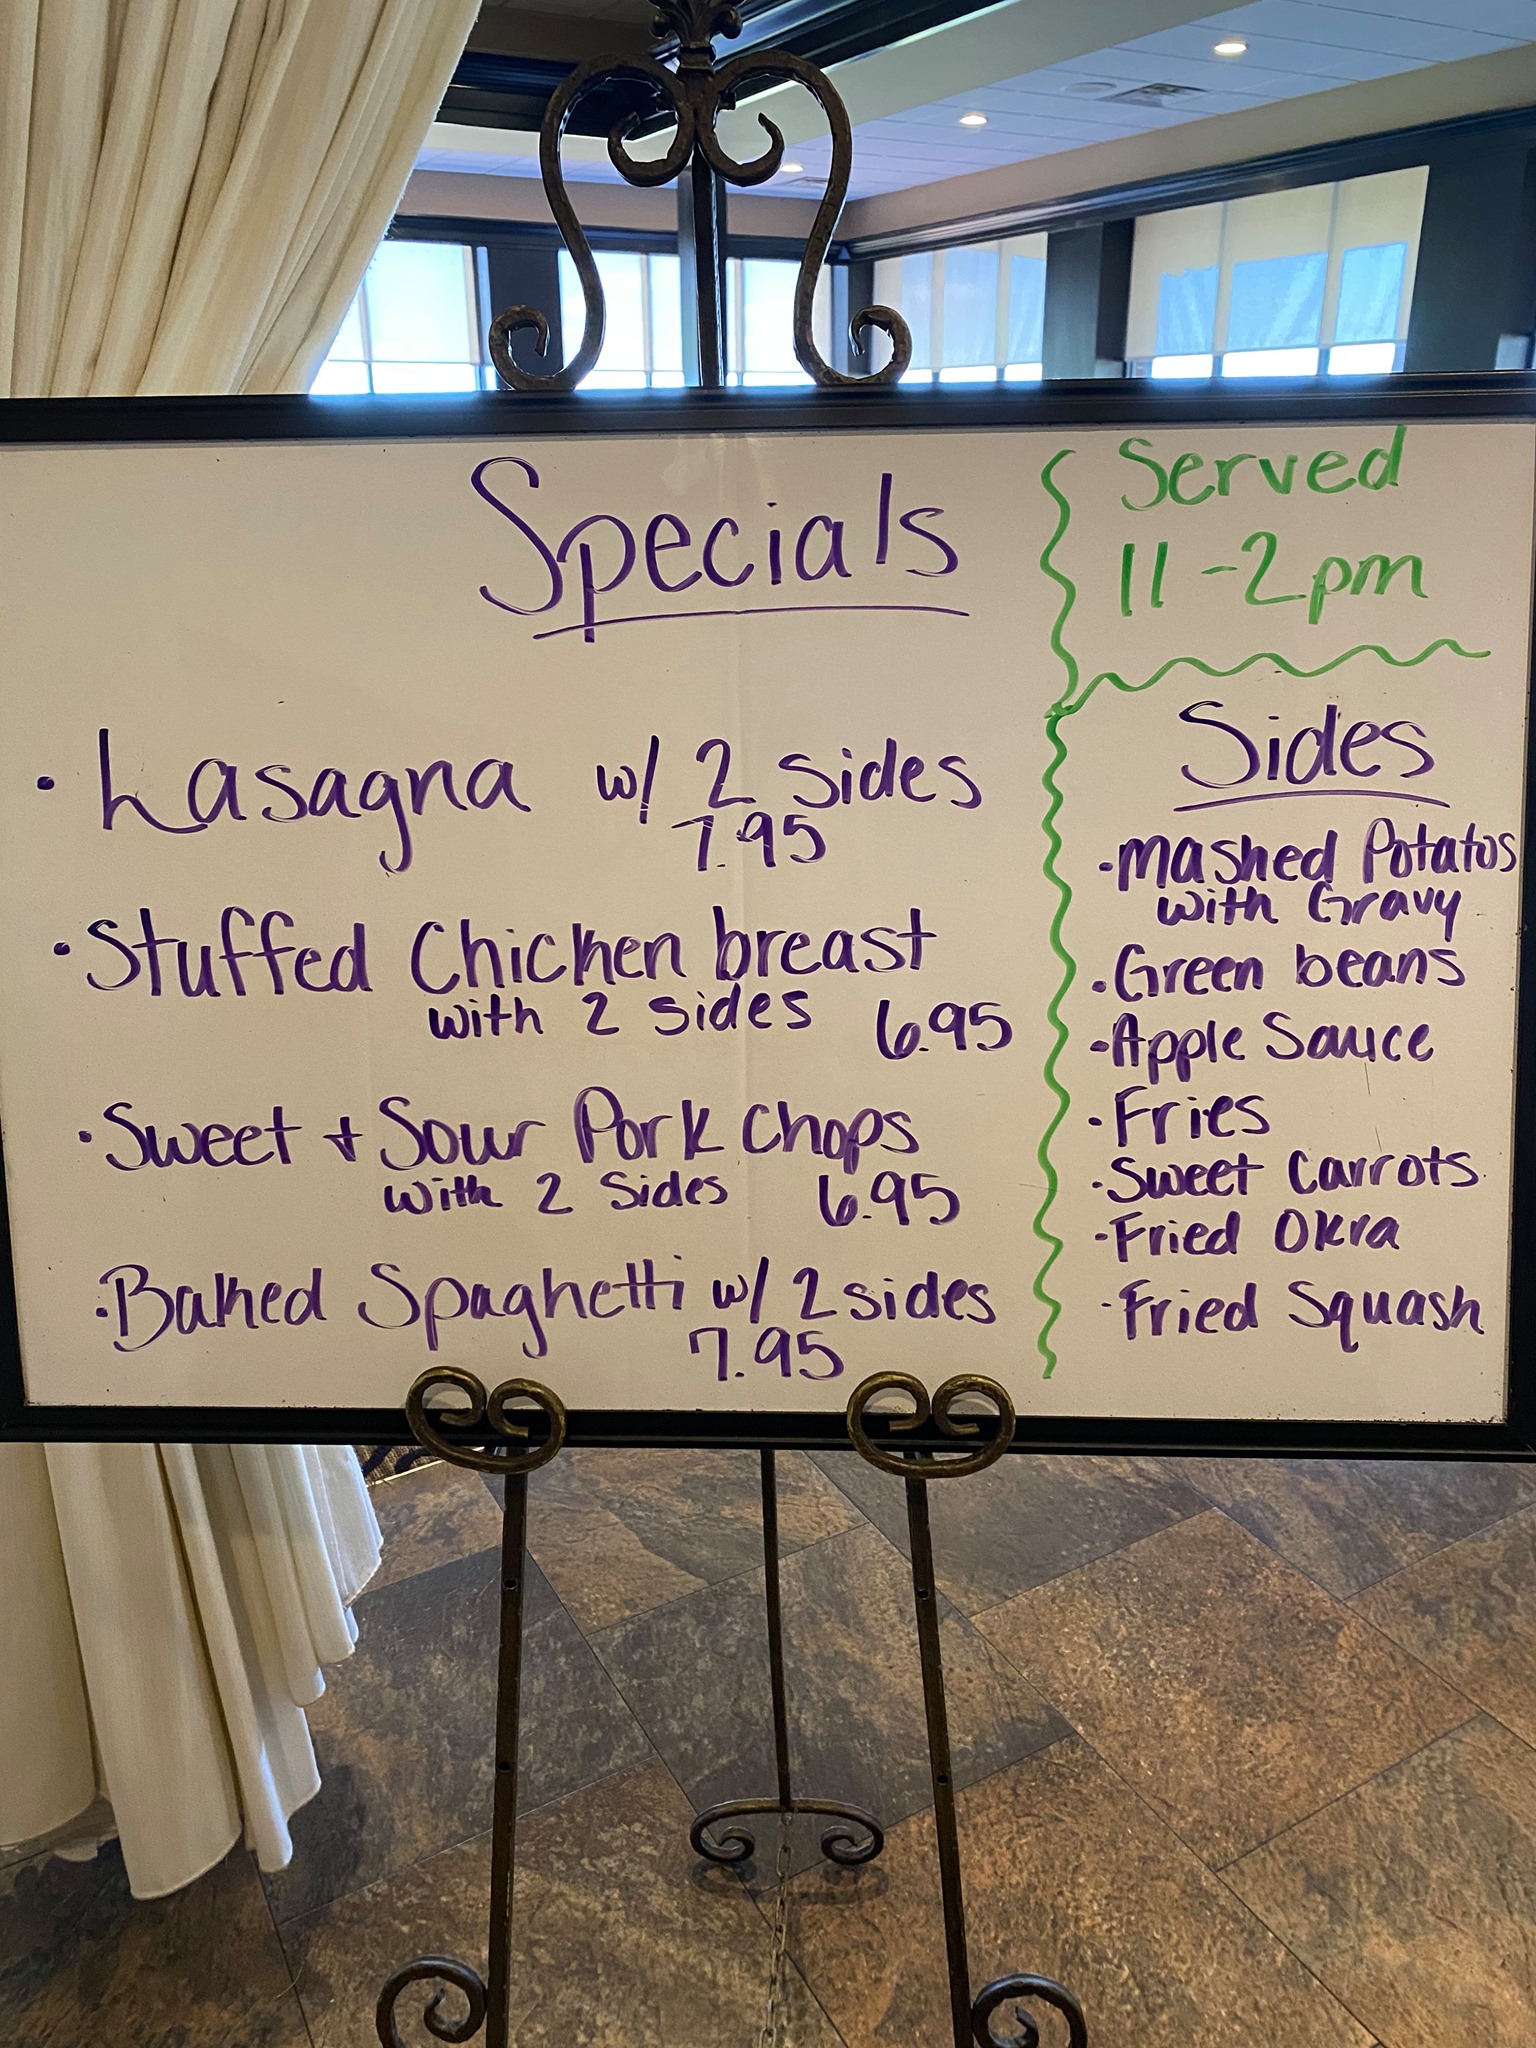 Specials
• Lasagna w/ 2 sides
7.95
• Stuffed Chicken breast
with 2 sides 6.95
• Sweet + Sour Pork Chops
with 2 Sides 6.95
• Baked Spaghetti w/ 2 sides
7.95
Served
11-2pm
Sides
• Mashed Potatos
with Gravy
• Green beans
• Apple Sauce
• Fries
• Sweet Carrots
• Fried Okra
• Fried Squash